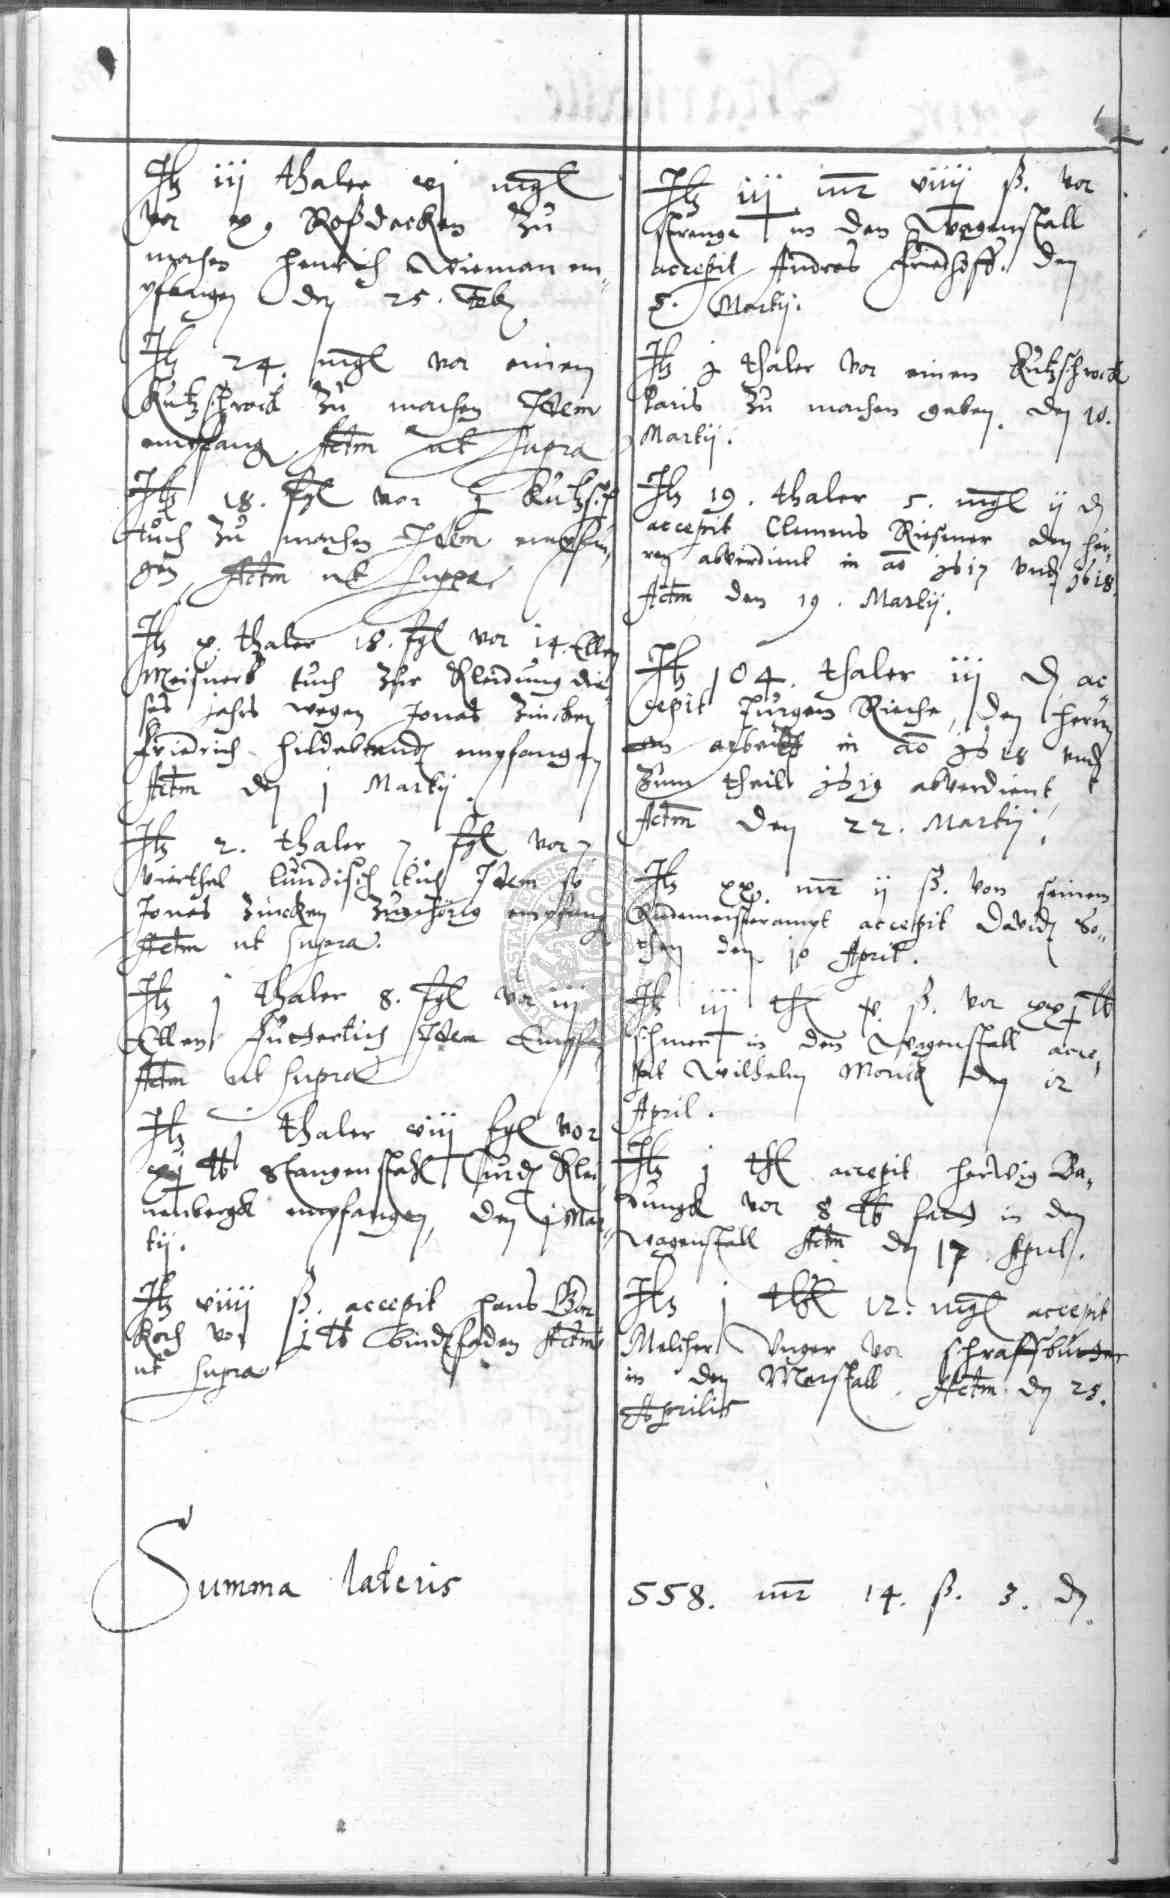 Itz iij thaler vj mgl
vor x Roßdecken zu
machen Henrich Wieman em-
pfangen den 25. Feb
Itz 24. mgl vor einen
Kutzschrock zu machen Idem
empfang Actm ut supra
Itz 18. fgl vor j Kutzsch
tuch zu machen Idem empfan-
gen Actm ut supra
Itz x thaler 18. fgl vor 14. Ellen
Meisners tuch zur Kleidung die-
ses jahrs wegen Jonas Zincken
Friedrich Hildebrandt empfangen
Actm den j Martij.
Itz 2. thaler 7 fgl vor 7
vierthel Lundisch tuch Idem so
Jonas Zincken zugehörig empfang
Actm ut supra.
Itz j thaler 8. fgl vor iij
Ellen Futtertuch Idem Empfa
Actm ut supra
Itz thaler viij fgl vor
xj lb Stangenstahl Curdt Klei-
nenbergk empfangen, den j Mar-
tij.
Itz viiij ß. accepit Hans Bor
Koch vor j lb bindfaden Actm
ut supra
Itz iij mr viiij ß. vor
strenge in den Wagenstall
accepit Andres Friedhoff. den
5. Martij.
Itz j thaler vor einen Kutzschrock
Paris zu machen geben den 10.
Martij.
Itz 19. thaler 5. mgl ij d
accepit Clemens Riesener den her-
ren abverdient in ao 1617 undt 1618
Actm den 19. Martij.
Itz 104. thaler iij d ac
cepit Jürgen Rieche, den herrn
arbeitt in ao 1618 undt
zum theil 1619 abverdient
Actm den 22. Martij.
Itz xx. mr ij ß. von seinem
Budemeisterampt accepit Davidt Bo-
then den 10 April.
Itz iij thl x ß. vor xxj lb
schmer in den Wagenstall acce-
pit Wilhelm Monick den 12
April.
Itz j thl accepit Herwig Ba-
rungk vor 8 lb in den
wagenstall Actm den 17. April.
Itz j thl 12. mgl accepit
Melcher Unger vor
in den Marstall. Actm den 25.
Aprilis
Summa lateris 558. mr 14. ß. 3. d.